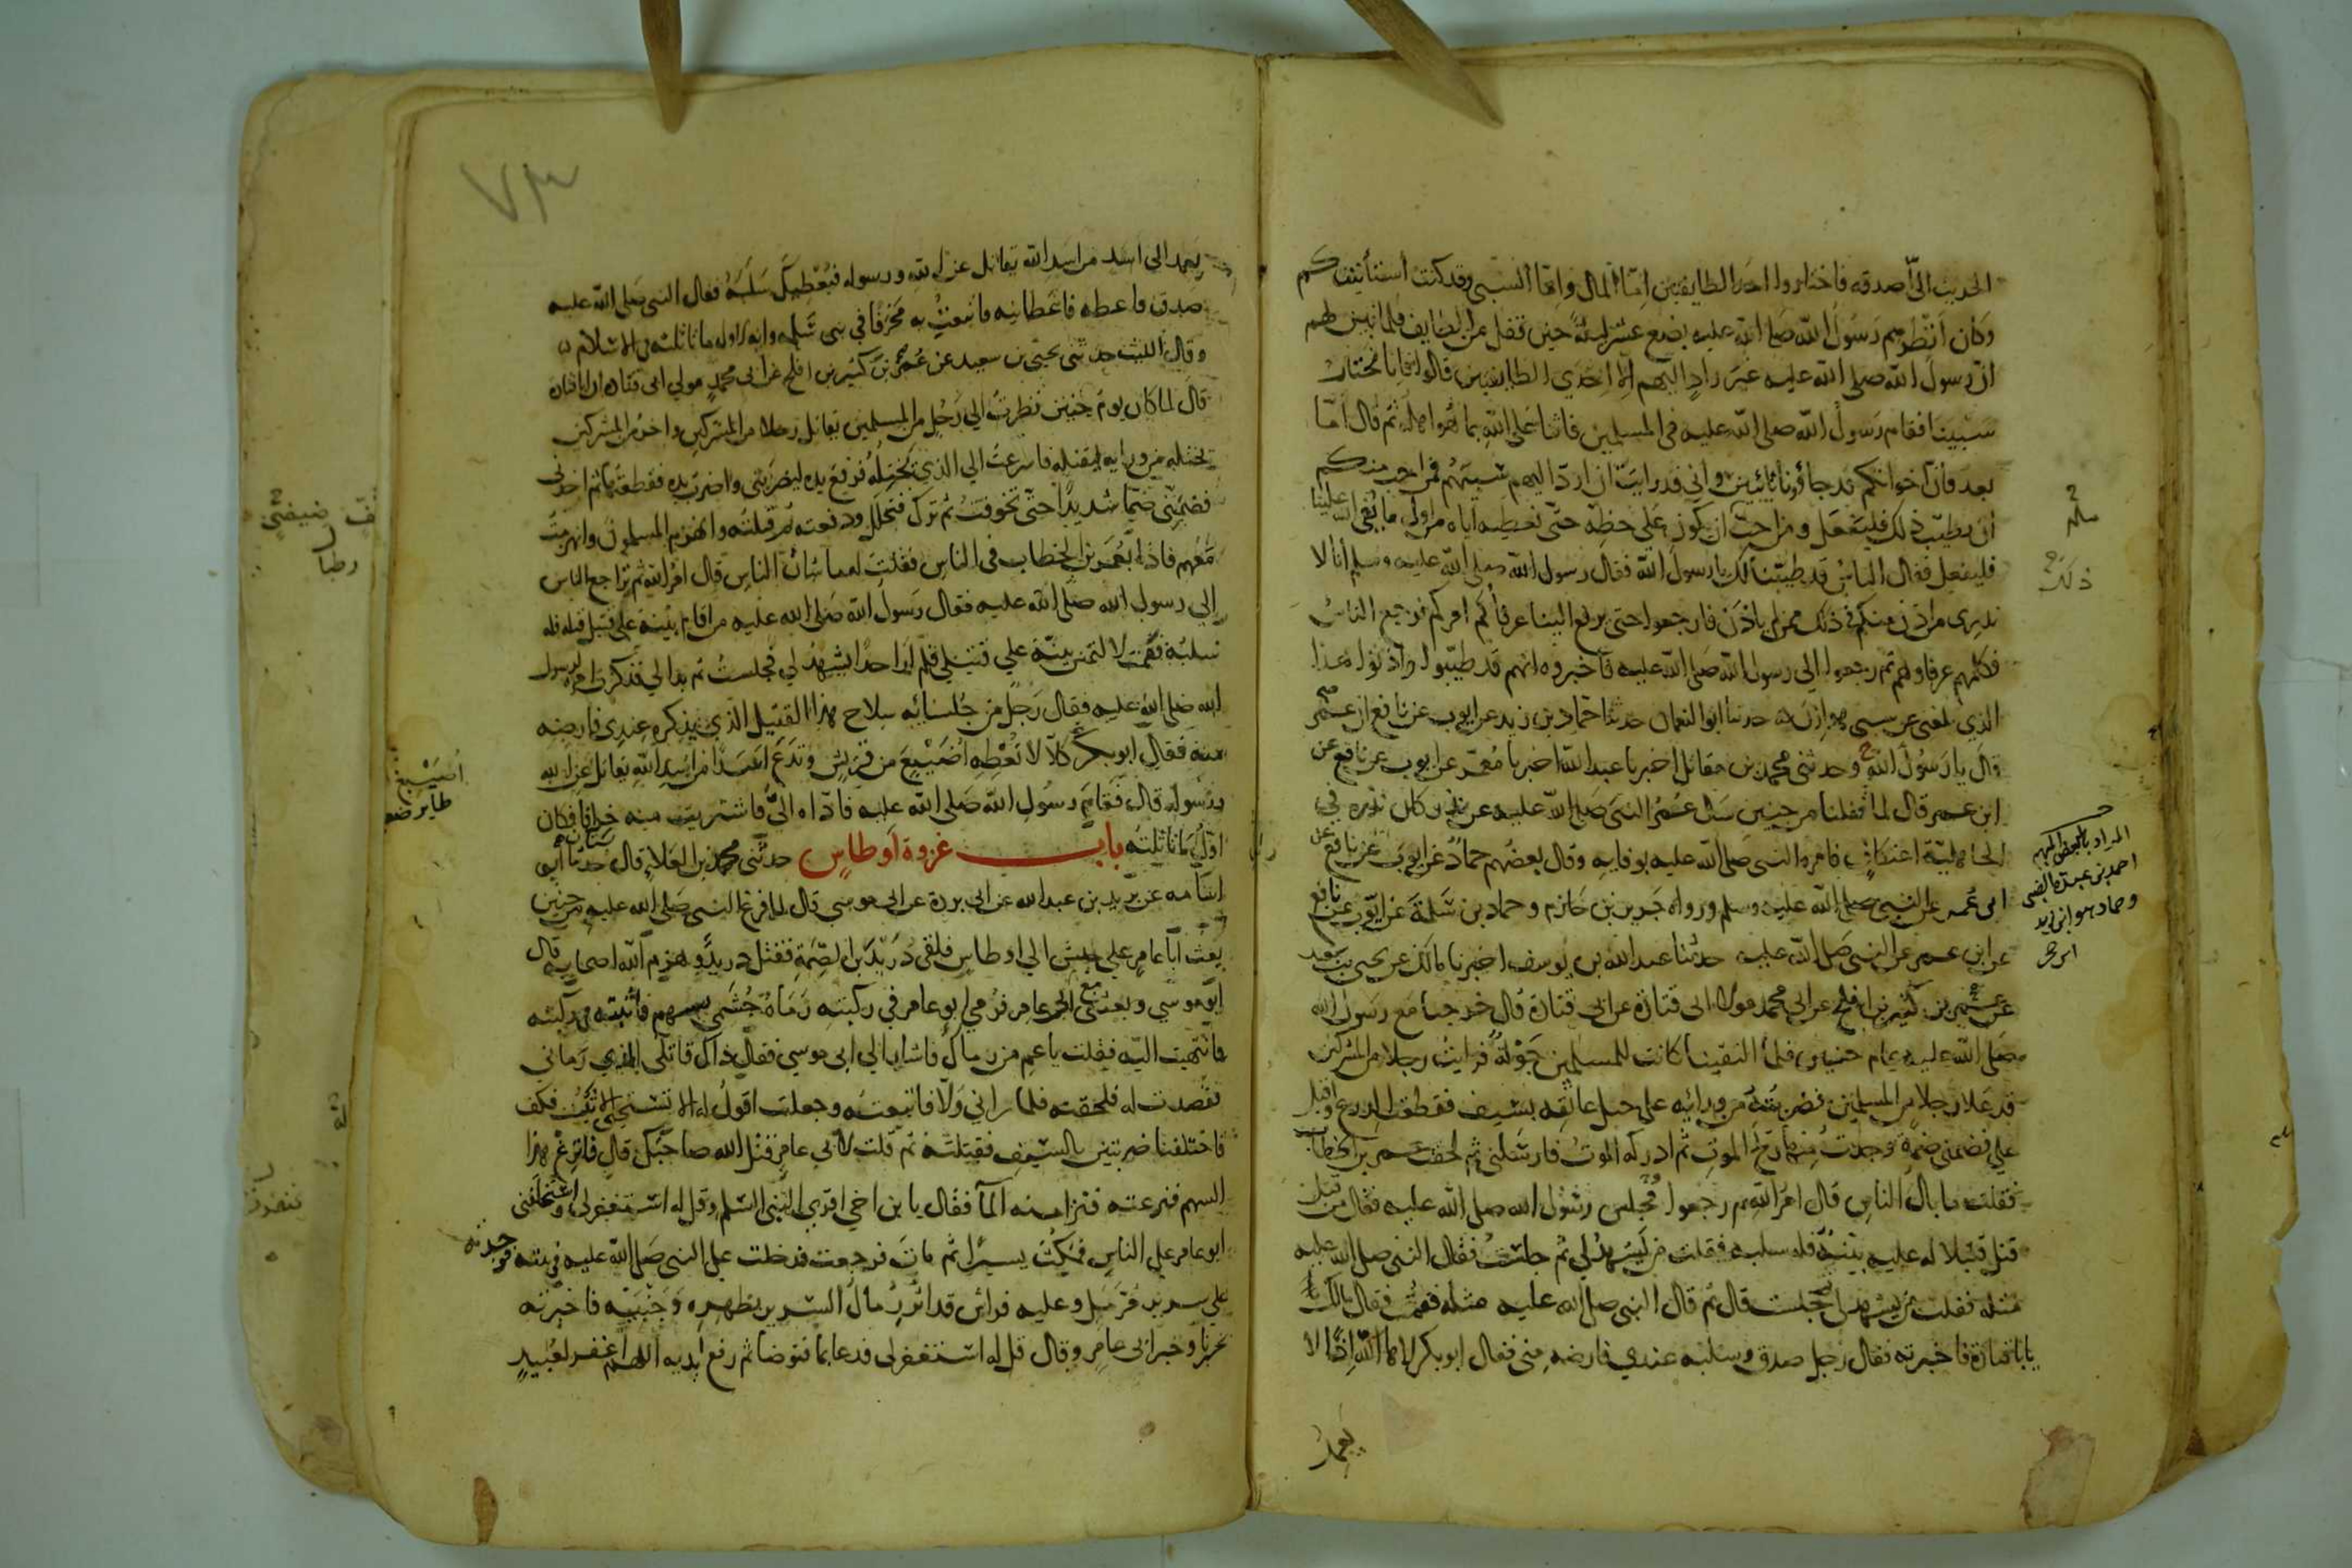 الحديث الىّ اصدقه فاختاروا احد الطايفتين اما المال واما السبى وقد كنت استأنيت بكم
وكان انتظرهم رسول الله صلى الله عليه بضع عشر ليلة حين قفل من الطايف فلما تبين لهم
ان رسول الله صلى الله عليه غير رادٍ اليهم الا احدي الطايفتين قالوا فانا نختار
سبينا فقام رسول الله صلى الله عليه في المسلمين فاثنا على الله بما هو اهله ثم قال امّا
بعد فان اخوانكم قد جاؤنا تائبين واني قد رايت ان اردّ اليهم سبيهم فمن احب منكم
ان يطيّب ذلك فليفعل ومن احب ان يكون على حظه حتى نعطيه اياه من اول ما يفى الله علينا
فليفعل فقال الناس قد طيبنا لك يا رسول الله فقال رسول الله صلى الله عليه وسلم انا لا
ندرى من اذن منكم في ذلك ممن لم ياذن فارجعوا حتى يرفع الينا عرفاؤكم امركم فرجع الناس
فكلمهم عرفاوهم ثم رجعوا الى رسول الله صلى الله عليه فاخبروه انهم قد طيّبوا واذنوا هذا
الذي بلغنى عن سبى هوازن حدثنا ابو النعمان حدثنا حماد بن زيد عن ايوب عن نافع ان عمر
قال يا رسول الله وحدثنى محمد بن مقاتل اخبرنا عبد الله اخبرنا معمر عن ايوب عن نافع عن
ابن عمر قال لما قفلنا من حنين سال عمر النبى صلى الله عليه عن نذر كان نذره في
الجاهلية اعتكاف فامره النبى صلى الله عليه بوفايه وقال بعضهم حماد عن ايوب عن نافع عن
ابن عمر عن النبى صلى الله عليه وسلم ورواه جرير بن حازم وحماد بن سلمة عن ايوب عن نافع
عن ابن عمر عن النبى صلى الله عليه حدثنا عبد الله بن يوسف اخبرنا مالك عن يحيى بن سعيد
عن عمر بن كثير بن افلح عن ابى محمد مولى ابى قتادة عن ابى قتادة قال خرجنا مع رسول الله
صلى الله عليه عام حنين فلما التقينا كانت للمسلمين جولة فرايت رجلا من المشركين
قد علا رجلا من المسلمين فضربته من ورائه على حبل عاتقه بسيف فقطعت الدرع واقبل
علي فضمني ضمة وجدت منها ريح الموت ثم ادركه الموت فارسلنى ثم لحقت عمر بن الخطاب
فقلت ما بال الناس قال امر الله ثم رجعوا وجلس رسول الله صلى الله عليه فقال من
قتل قتيلا له عليه بينة فله سلبه فقلت من يشهد لي ثم جلست فقال النبى صلى الله عليه
مثله فقلت من يشهد لى ثم جلست قال ثم قال النبى صلى الله عليه مثله فقمت فقال مالك
يا با قتادة فاخبرته فقال رجل صدق وسلبه عندي فارضه منى فقال ابو بكر لاها الله اذًا لا
يعمد
ذلك
المراد بالبعض المبهم
احمد بن عبدة الضبى
وحماد هو ابن زيد
٧٣
يعمد الى اسد من اسد الله يقاتل عن الله ورسوله فيعطيك سلبه فقال النبى صلى الله عليه
صدق فاعطه فاعطانيه فابتعت به مخرفا في بنى سلمة وانه لاول مال تاثلته فى الاسلام
وقال الليث حدثنى يحيى بن سعيد عن عمر بن كثير بن افلح عن ابى محمد مولى ابى قتاده ان ابا قتادة
قال لما كان يوم حنين نظرت الى رجل من المسلمين يقاتل رجلا من المشركين واخر من المشركين
يختله من ورايه ليقتله فاسرعت الى الذي يختله فرفع يده ليضربنى واضرب يده فقطعتها ثم اخذنى
فضمّنى ضمّا شديدا حتى تخوفت ثم ترك فتحلل ودفعته ثم قتلته وانهزم المسلمون وانهزمت
معهم فاذا بعمر بن الخطاب فى الناس فقلت له ما شان الناس قال امر الله ثم تراجع الناس
الى رسول الله صلى الله عليه فقال رسول الله صلى الله عليه من اقام بينة على قتيل قتله فله
سلبه فقمت لالتمس بينة على قتيلى فلم ار احدا يشهد لي فجلست ثم بدا لي فذكرت امره لرسول
الله صلى الله عليه فقال رجل من جلسائه سلاح هذا القتيل الذي يذكره عندى فارضه
منه فقال ابو بكر كلا لا تعطه اضيبع من قريش وتدع اسدا من اسد الله يقاتل عن الله
ورسوله قال فقام رسول الله صلى الله عليه فاداه الىّ فاشتريت منه خرافا فكان
اول مال تاثلته باب غزوة اوطاس حدثنى محمد بن العلاء قال حدثنا ابو
اسامه عن بريد بن عبد الله عن ابى بردة عن ابى موسى قال لما فرغ النبى صلى الله عليه من حنين
بعث ابا عامر على جيش الى اوطاس فلقى دريد بن الصمة فقتل دريد وهزم الله اصحابه قال
ابو موسي وبعثنى مع ابى عامر فرمي ابو عامر في ركبته رماه جشمي بسهم فاثبته فى ركبته
فانتهيت اليه فقلت يا عم من رماك فاشار الى ابى موسى فقال ذاك قاتلى الذي رماني
فقصدت له فلحقته فلما راني ولّا فاتبعته وجعلت اقول له الا تستحيى الا تثبت فكف
فاختلفنا ضربتين بالسيف فقتلته ثم قلت لابي عامر قتل الله صاحبك قال فانزع هذا
السهم فنزعته فنزا منه الما فقال يا بن اخي اقرى النبى السلم وقل له استغفر لى واستخلفنى
ابو عامر على الناس فمكث يسيرا ثم مات فرجعت فدخلت على النبى صلى الله عليه في بيته فوجدته
على سرير مرمل وعليه فراش قد اثر رمال السرير بظهره وجنبيه فاخبرته
بخبرنا وخبر ابى عامر وقال قل له استغفر لى فدعا بما فتوضا ثم رفع يديه اللهم اغفر لعبيد